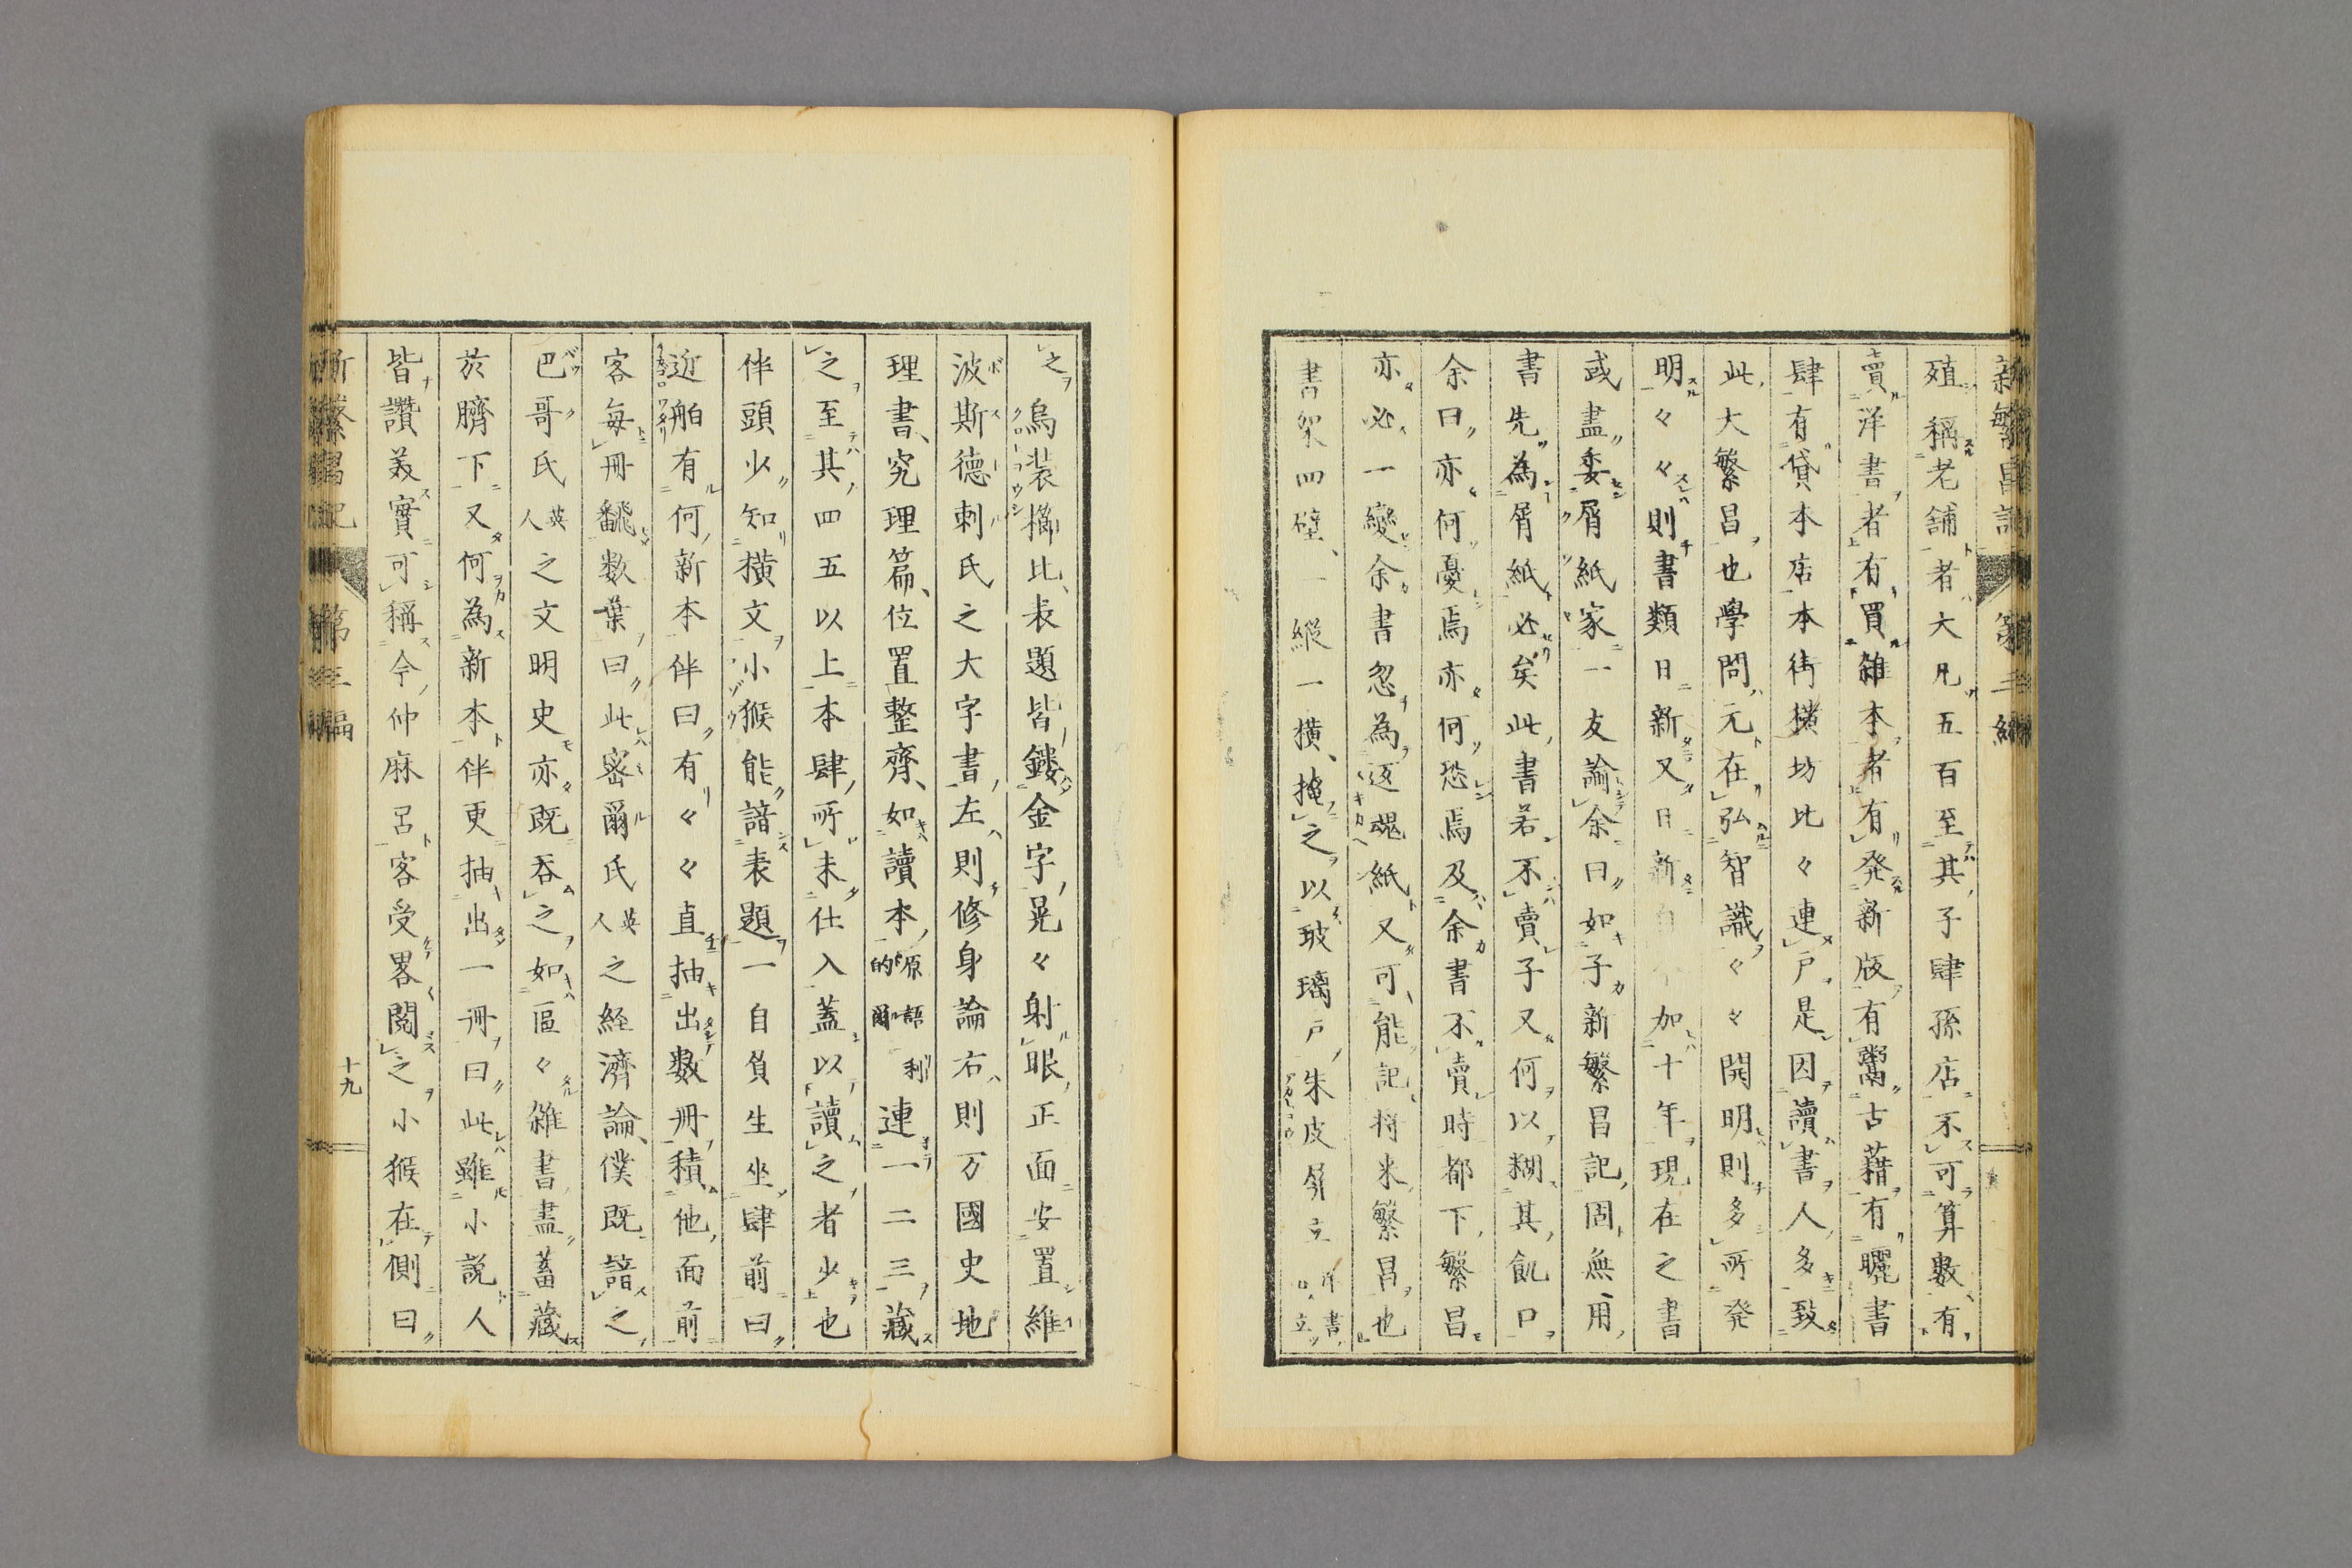 新繁昌記 第三編
殖稱老舗者大凡五百至其子肆孫店不可算數有
賣洋書者有買雜本者有発新版有鬻古藉有曬書
肆有貸本店本街横坊比々連戸是因讀書人多致
此大繁昌也學問元在弘智識々々開明則多所発
明々々則書類日新又日新 加十年現在之書
或盡委屑紙家一友論余曰如子新繁昌記固無用
書先為屑紙必矣此書若不賣子又何以糊其飢口
余曰亦何憂焉亦何恐焉及余書不賣時都下繁昌
亦必一變余書忽為返魂紙又可能記将来繁昌也
書架四壁、一縦一横、掩之以玻璃戸朱皮屏立洋書 立
之烏装櫛比、表題皆鏤金字晃々射眼正面安置維
波斯德刺氏之大字書左則修身論右則万國史地
理書、究理篇、位置整齊、如讀本原語的利爾連一二三藏
之至其四五以上本肆所未仕入蓋以讀之者少也
伴頭少知横文小猴能諳表題一自負生坐肆前曰
近舶有何新本伴曰有々々直抽出数冊積他面前
客毎冊飜数葉曰此密爾氏英人之経濟論、僕既諳之
巴哥氏英人之文明史亦既呑之如區々雜書盡蓄藏
於臍下又何為新本伴更抽出一冊曰此雖小説人
皆讚美實可稱今仲麻呂客受畧閲之小猴在側曰
新繁昌記 第三編 十九